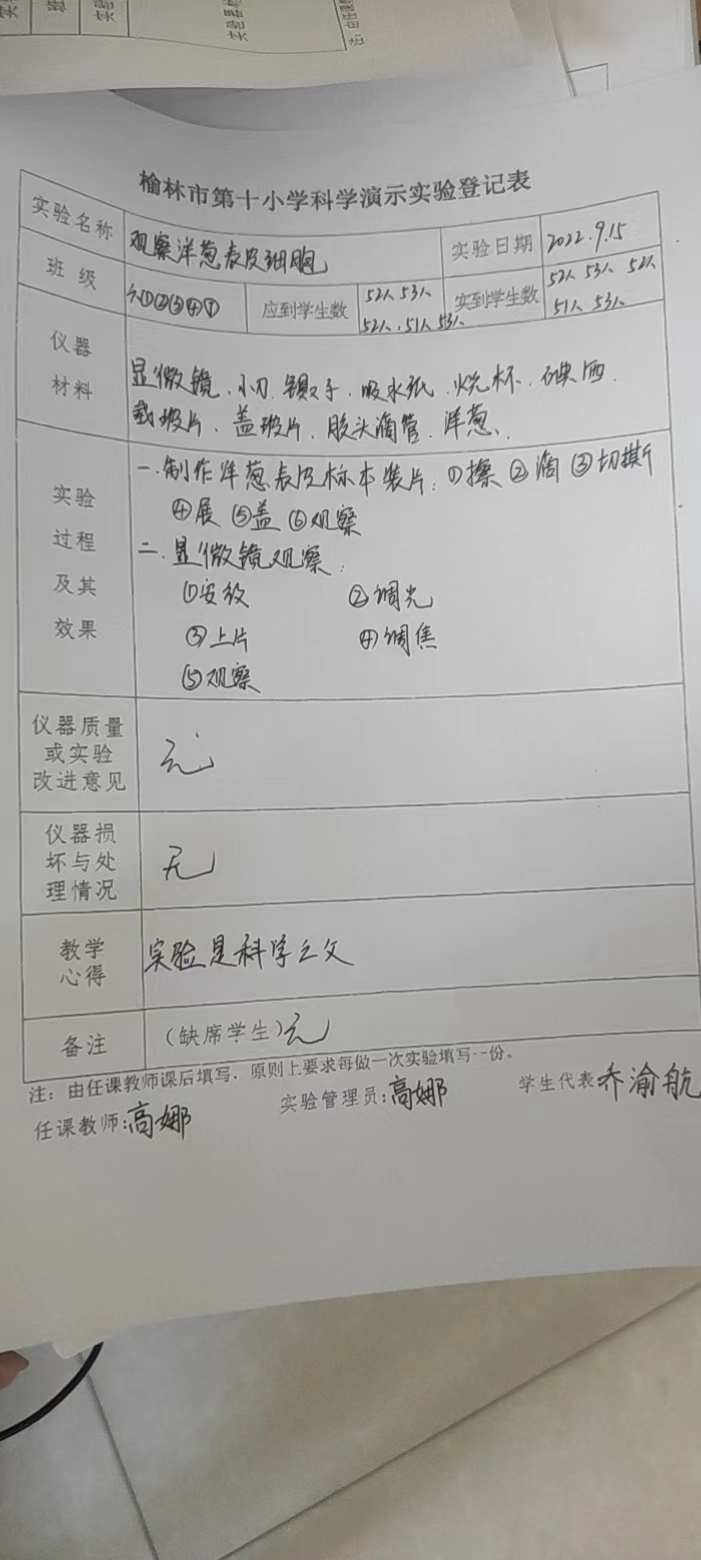 榆林市第十小学科学演示实验登记表
实验名称 观察洋葱表皮细胞 实验日期 2022.9.15
班级 六①②③④⑦ 应到学生数 52人 53人 实到学生数 52人 53人 52人
52人.51人 53人 51人 53人
仪器 显微镜、小刀、镊子、吸水纸、烧杯、碘酒、
材料 载玻片、盖玻片、胶头滴管、洋葱、
实验过程及其效果
一.制作洋葱表皮标本装片:①擦 ②滴 ③切撕
④展 ⑤盖 ⑥观察
二.显微镜观察:
①安放 ②调光
③上片 ④调焦
⑤观察
仪器质量
或实验 无
改进意见
仪器损
坏与处 无
理情况
教学 实验是科学之父
心得
备注 (缺席学生)无
注:由任课教师课后填写,原则上要求每做一次实验填写一份。
任课教师:高娜 实验管理员:高娜 学生代表 乔渝航